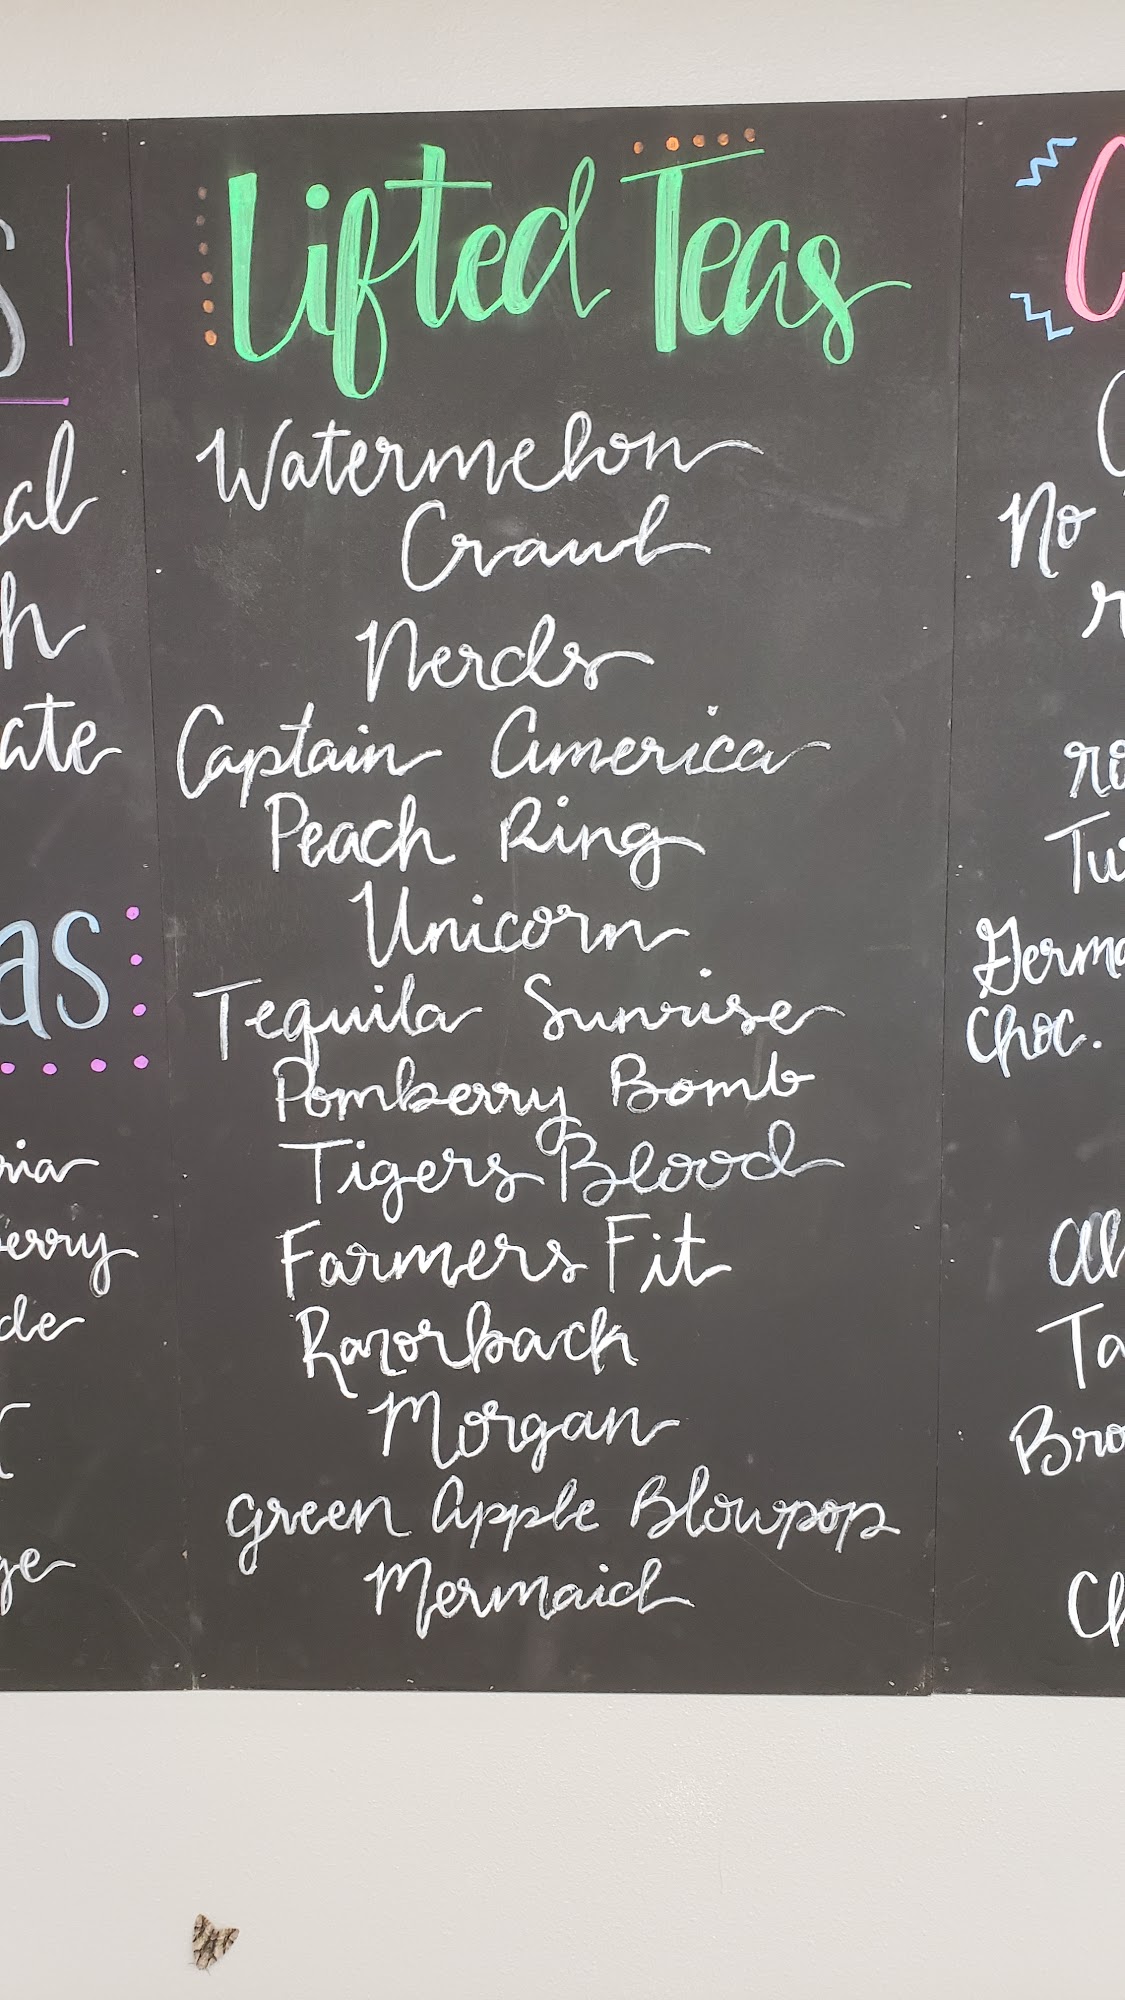 Lifted Teas
Watermelon
Crawl
Nerds
Captain America
Peach Ring
Unicorn
Tequila Sunrise
Pomberry Bomb
Tigers Blood
Farmers Fit
Razorback
Morgan
Green Apple Blowpop
Mermaid
as
No
Germa
Choc.